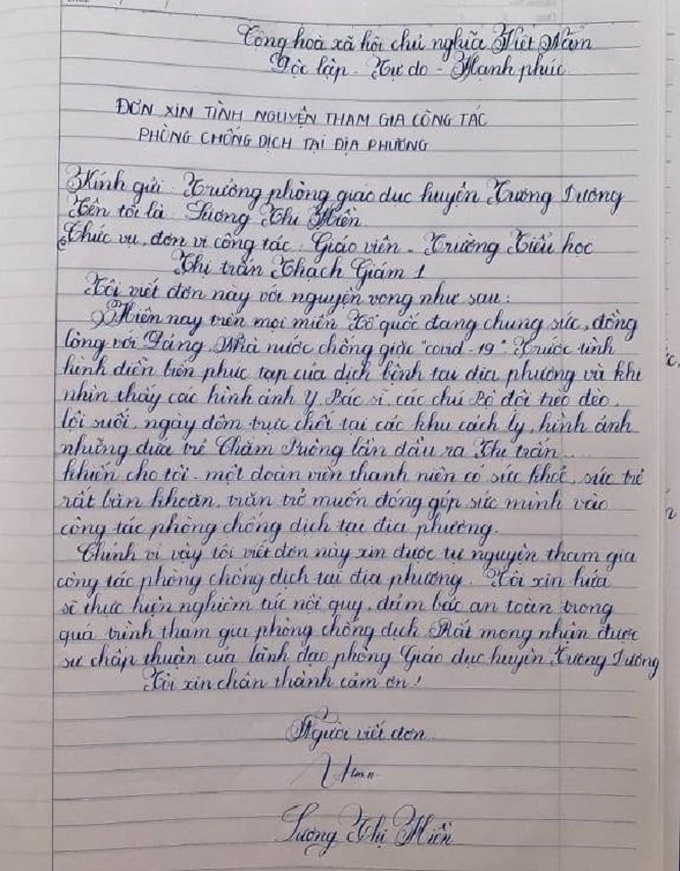 Cộng hoà xã hội chủ nghĩa Việt Nam
Độc lập - Tự do - Hạnh phúc
ĐƠN XIN TÌNH NGUYỆN THAM GIA CÔNG TÁC
PHÒNG CHỐNG DỊCH TẠI ĐỊA PHƯƠNG
Kính gửi: Trưởng phòng giáo dục huyện Tương Dương
Tên tôi là: Lương Thị Hiền
Chức vụ, đơn vị công tác: Giáo viên - Trường Tiểu học
Thị trấn Thạch Giám 1
Tôi viết đơn này với nguyện vọng như sau:
Hiện nay trên mọi miền Tổ quốc đang chung sức, đồng
lòng với Đảng, Nhà nước chống giặc "covid - 19". Trước tình
hình diễn biến phức tạp của dịch bệnh tại địa phương và khi
nhìn thấy các hình ảnh Y, Bác sĩ, các chú Bộ đội trèo đèo,
lội suối, ngày đêm trực chốt tại các khu cách ly, hình ảnh
những đứa trẻ Chăm Puông lần đầu ra Thị trấn...
khiến cho tôi - một đoàn viên thanh niên có sức khoẻ, sức trẻ
rất băn khoăn, trăn trở muốn đóng góp sức mình vào
công tác phòng chống dịch tại địa phương.
Chính vì vậy tôi viết đơn này xin được tự nguyện tham gia
công tác phòng chống dịch tại địa phương. Tôi xin hứa
sẽ thực hiện nghiêm túc nội quy, đảm bảo an toàn trong
quá trình tham gia phòng chống dịch. Rất mong nhận được
sự chấp thuận của lãnh đạo phòng Giáo dục huyện Tương Dương
Tôi xin chân thành cảm ơn!
Người viết đơn
Lương Thị Hiền